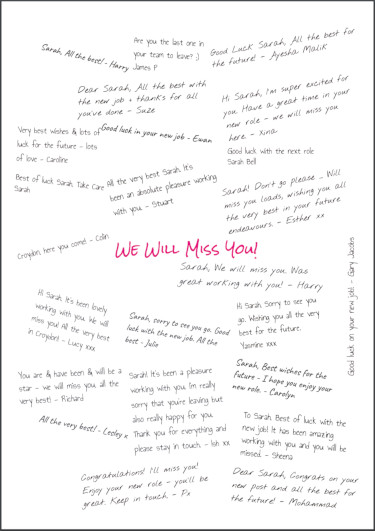 Are you the last one in
your team to leave? ;)
James P
Sarah, All the best! - Harry
Good Luck Sarah, All the best for
the future! - Ayesha Malik
Dear Sarah, All the best with
the new job + thanks for all
you've done - Suze
Hi Sarah, I'm super excited for
you. Have a great time in your
new role - we will miss you
here. - Xina
Very best wishes & lots of
luck for the future - lots
of love - Caroline
Good luck in your new job - Ewan
Good luck with the next role
Sarah Bell
Best of luck Sarah. Take care
Sarah
All the very best Sarah. It's
been an absolute pleasure working
with you. - Stuart
Sarah! Don't go please ... Will
miss you loads, wishing you all
the very best in your future
endeavours. - Esther xx
Croydon, here you come! - Colin
We Will Miss You!
Sarah, We will miss you. Was
great working with you! - Harry
Good luck on your new job! - Gary Jacobs
Hi Sarah. It's been lovely
working with you. We will
miss you! All the very best
in Croydon! - Lucy xxx
Sarah, sorry to see you go. Good
luck with the new job. All the
best - Julie
Hi Sarah. Sorry to see you
go. Wishing you all the very
best for the future.
Yasmine xxx
Sarah, Best wishes for the
future - I hope you enjoy your
new role. - Carolyn
You are & have been & will be a
star - we will miss you all the
very best! - Richard
Sarah! It's been a pleasure
working with you. I'm really
sorry that you're leaving but
also really happy for you.
Thank you for everything and
please stay in touch. - Ish xx
All the very best! - Lesley x
To Sarah. Best of luck with the
new job! It has been amazing
working with you and you will be
missed. - Sheena
Congratulations! I'll miss you!
Enjoy your new role - you'll be
great. Keep in touch. - Px
Dear Sarah, Congrats on your
new post and all the best for
the future! - Mohammad